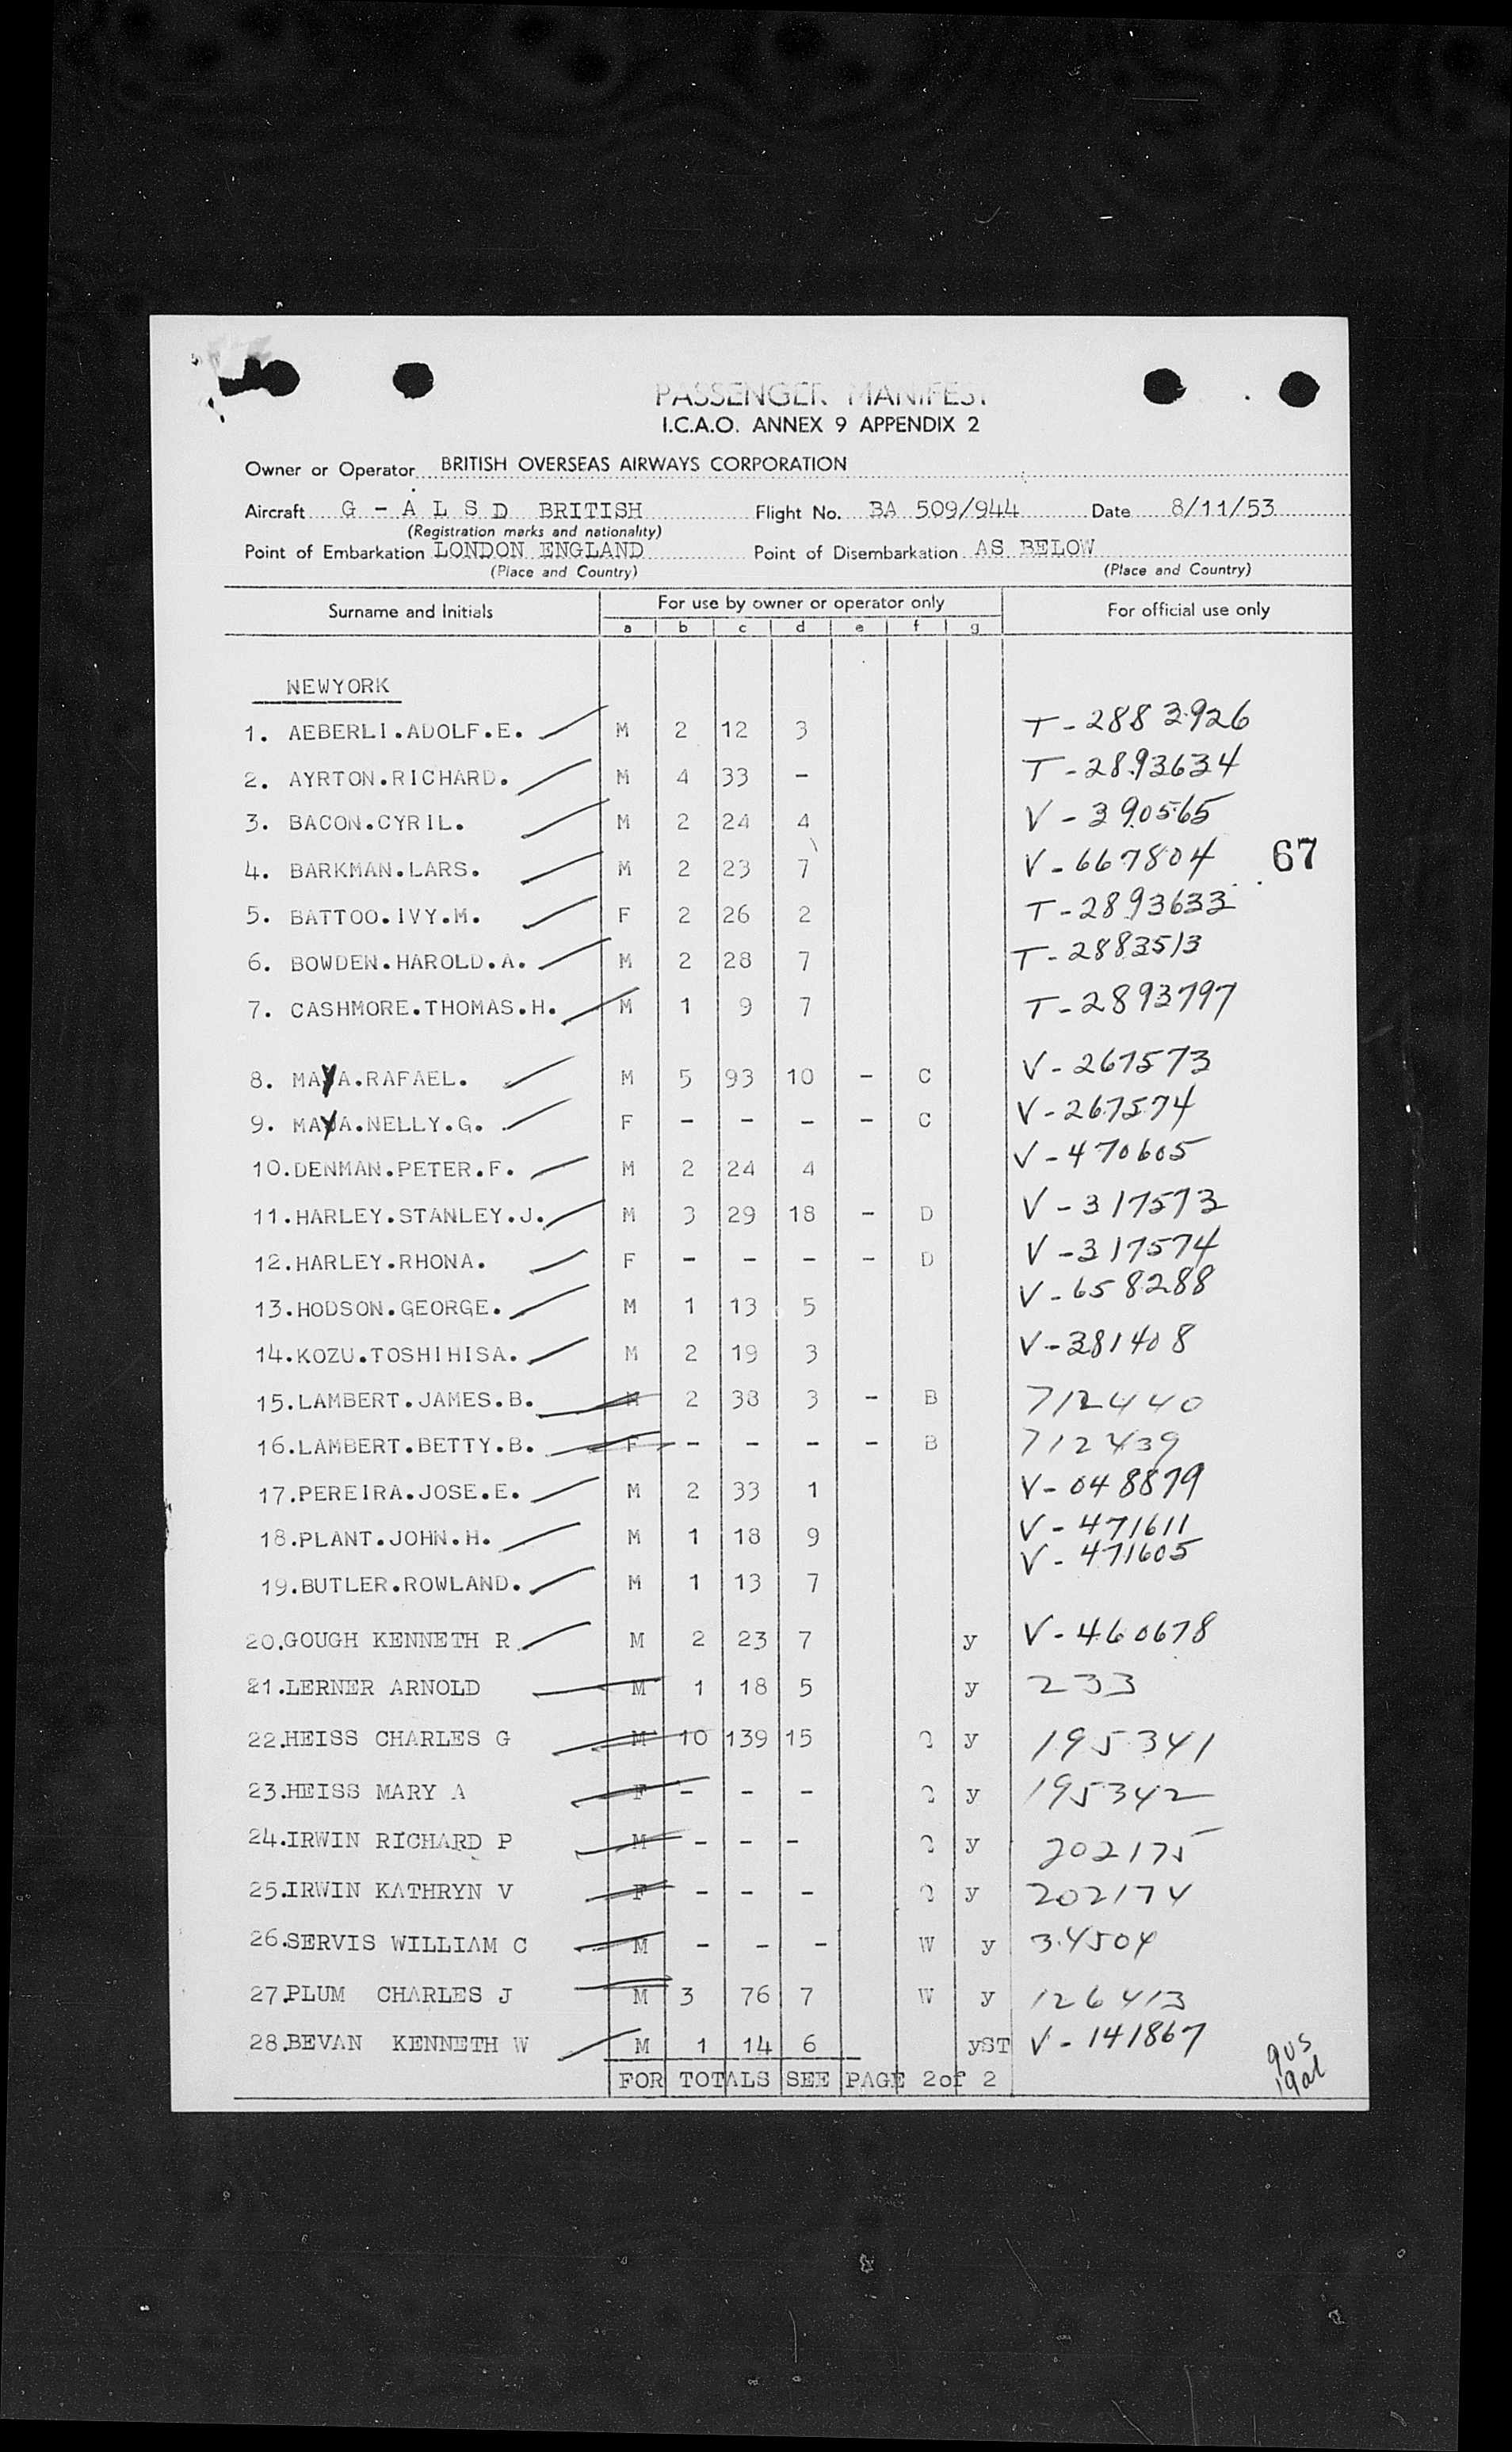 PASSENGER MANIFEST
I.C.A.O. ANNEX 9 APPENDIX 2
Owner or Operator BRITISH OVERSEAS AIRWAYS CORPORATION
Aircraft G - A L S D BRITISH Flight No. BA 509/944 Date 8/11/53
(Registration marks and nationality)
Point of Embarkation LONDON ENGLAND Point of Disembarkation AS BELOW
(Place and Country) (Place and Country)
Surname and Initials For use by owner or operator only For official use only
a b c d e f g
NEWYORK
1. AEBERLI.ADOLF.E. M 2 12 3 T-2882926
2. AYRTON.RICHARD. M 4 33 - T-2893634
3. BACON.CYRIL. M 2 24 4 V-390565
4. BARKMAN.LARS. M 2 23 7 V-667804 67
5. BATTOO.IVY.M. F 2 26 2 T-2893633
6. BOWDEN.HAROLD.A. M 2 28 7 T-2883513
7. CASHMORE.THOMAS.H. M 1 9 7 T-2893797
8. MAYA.RAFAEL. M 5 93 10 - C V-267573
9. MAYA.NELLY.G. F - - - - C V-267574
10.DENMAN.PETER.F. M 2 24 4 V-470605
11.HARLEY.STANLEY.J. M 3 29 18 - D V-317573
12.HARLEY.RHONA. F - - - - D V-317574
13.HODSON.GEORGE. M 1 13 5 V-658288
14.KOZU.TOSHIHISA. M 2 19 3 V-381408
15.LAMBERT.JAMES.B. M 2 38 3 - B 712440
16.LAMBERT.BETTY.B. F - - - - B 712439
17.PEREIRA.JOSE.E. M 2 33 1 V-048879
18.PLANT.JOHN.H. M 1 18 9 V-471611
19.BUTLER.ROWLAND. M 1 13 7 V-471605
20.GOUGH KENNETH R M 2 23 7 y V-460678
21.LERNER ARNOLD M 1 18 5 y 233
22.HEISS CHARLES G M 10 139 15 Q y 195341
23.HEISS MARY A F - - - Q y 195342
24.IRWIN RICHARD P M - - - Q y 202175
25.IRWIN KATHRYN V F - - - Q y 202174
26.SERVIS WILLIAM C M - - - W y 34504
27.PLUM CHARLES J M 3 76 7 W y 126413
28.BEVAN KENNETH W M 1 14 6 yST V-141867
9us
19al
FOR TOTALS SEE PAGE 2of 2